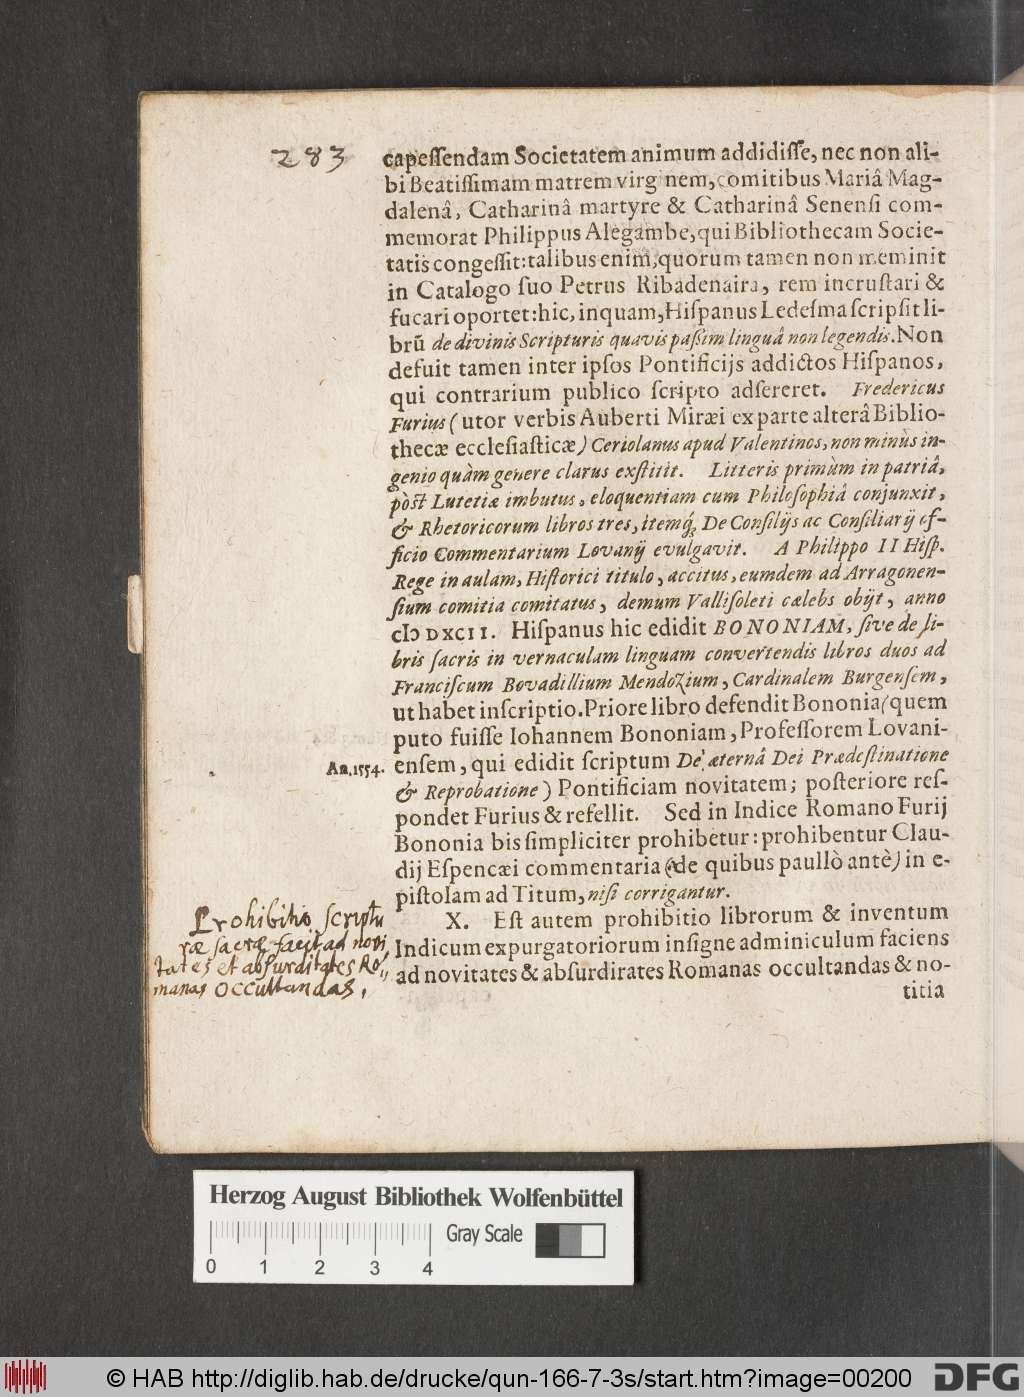 283
capeſſendam Societatem animum addidiſſe, nec non ali-
bi Beatiſſimam matrem virg nem, comitibus Mariâ Mag-
dalenâ, Catharinâ martyre & Catharinâ Senenſi com-
memorat Philippus Alegambe, qui Bibliothecam Socie-
tatis congeſſit: talibus enim, quorum tamen non meminit
in Catalogo ſuo Petrus Ribadenaira, rem incruſtari &
fucari oportet: hic, inquam, Hiſpanus Ledeſma ſcripſit li-
brũ de divinis Scripturis quavis paſſim linguâ non legendis. Non
defuit tamen inter ipſos Pontificijs addictos Hiſpanos,
qui contrarium publico ſcripto adſereret. Fredericus
Furius (utor verbis Auberti Miræi ex parte alterâ Biblio-
thecæ eccleſiaſticæ) Ceriolanus apud Valentinos, non minùs in-
genio quàm genere clarus exſtitit. Litteris primùm in patriâ,
pòſt Lutetiæ imbutus, eloquentiam cum Philoſophiâ conjunxit,
& Rhetoricorum libros tres, itemq́; De Conſilijs ac Conſiliarij of-
ficio Commentarium Lovanij evulgavit. A Philippo II Hiſp.
Rege in aulam, Hiſtorici titulo, accitus, eumdem ad Arragonen-
ſium comitia comitatus, demum Valliſoleti cælebs obijt, anno
cIↄ DXCII. Hiſpanus hic edidit BONONIAM, ſive de li-
bris ſacris in vernaculam linguam convertendis libros duos ad
Franciſcum Bovadillium Mendozium, Cardinalem Burgenſem,
ut habet inſcriptio. Priore libro defendit Bononia (quem
puto fuiſſe Iohannem Bononiam, Profeſſorem Lovani-
An. 1554. enſem, qui edidit ſcriptum De æternâ Dei Prædeſtinatione
& Reprobatione) Pontificiam novitatem; poſteriore reſ-
pondet Furius & refellit. Sed in Indice Romano Furij
Bononia bis ſimpliciter prohibetur: prohibentur Clau-
dij Eſpencæi commentaria (de quibus paullò antè) in e-
piſtolam ad Titum, niſi corrigantur.
X. Eſt autem prohibitio librorum & inventum
Indicum expurgatoriorum inſigne adminiculum faciens
ad novitates & abſurdirates Romanas occultandas & no-
titia
Prohibitio ſcriptu
ræ ſacræ facit ad novi,
tates et abſurditates Ro,,
manas occultandas,
Herzog August Bibliothek Wolfenbüttel
Gray Scale
0 1 2 3 4
© HAB http://diglib.hab.de/drucke/qun-166-7-3s/start.htm?image=00200
DFG